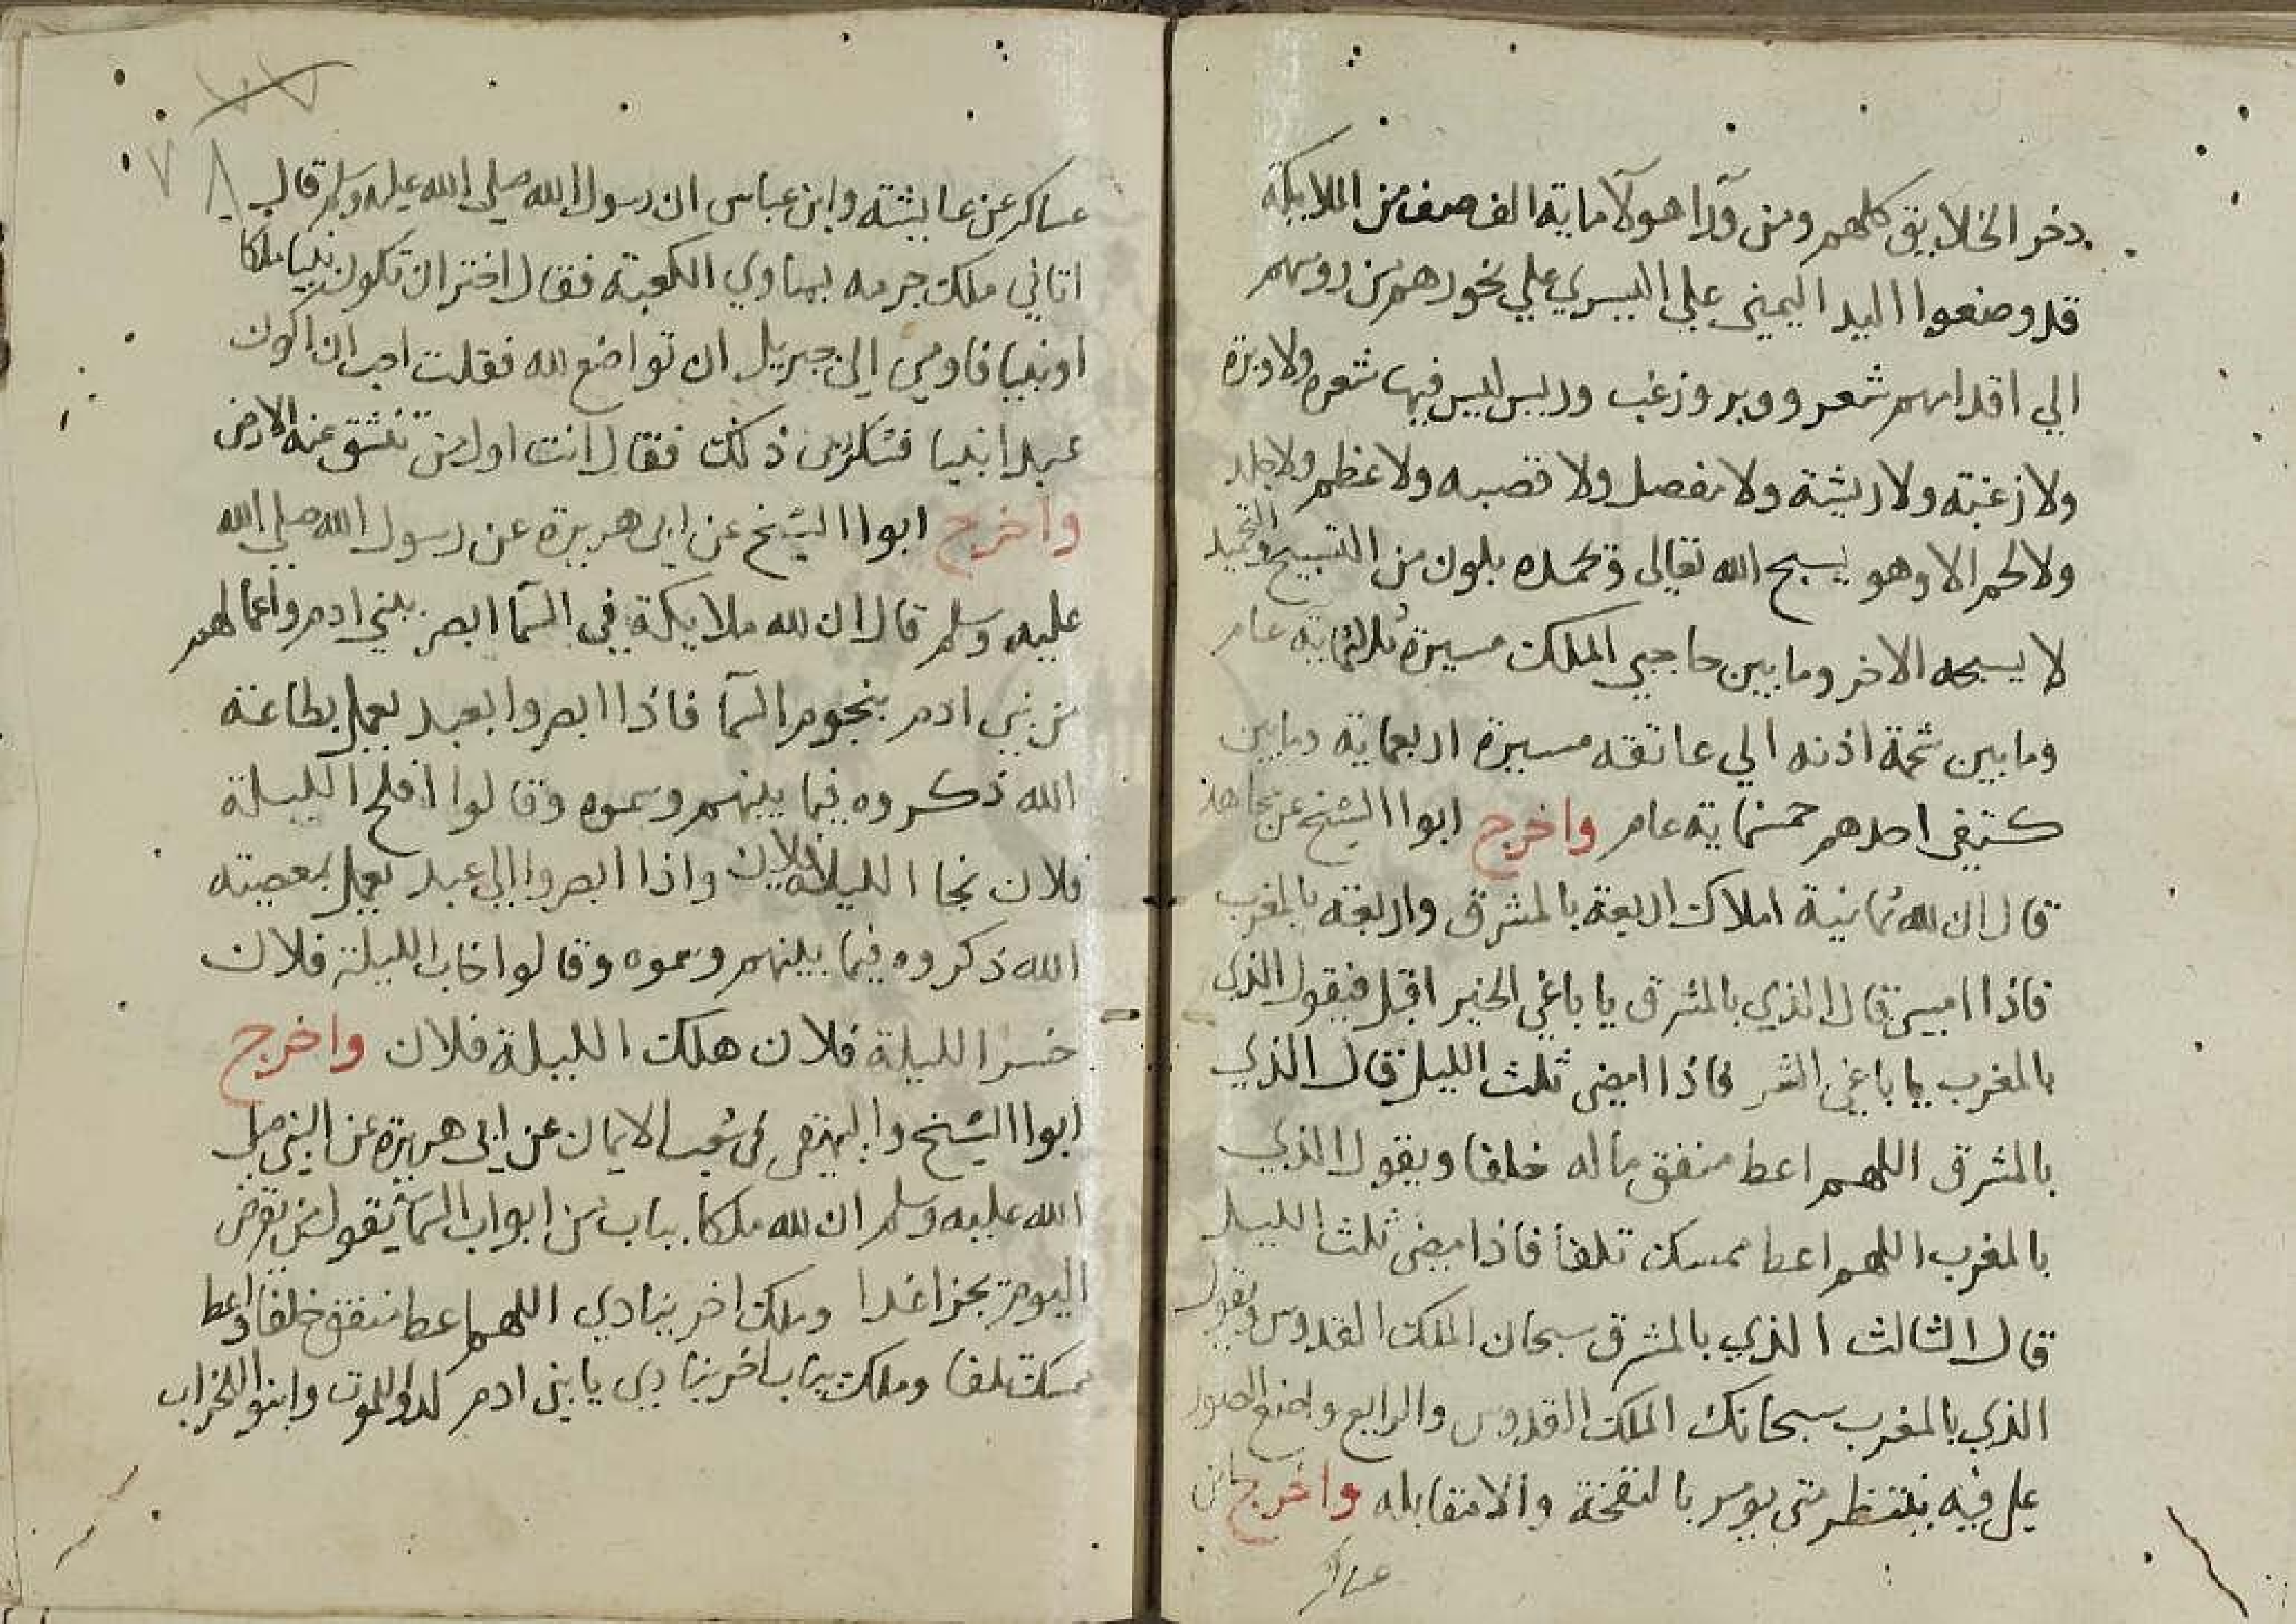 دخر الخلايق كلهم ومن ورا هولآ ماية الف صف من الملايكة
قد وضعوا اليد اليمني علي اليسري علي نحورهم من روسهم
الي اقدامهم شعر ووبر وزغب وريس ليس فيها شعره ولا وبرة
ولا زغبة ولا ريشة ولا مفصل ولا قصبه ولا عظم ولا جلد
ولا لحم الا وهو يسبح الله تعالي وتحمده بلون من التسبيح والتحميد
لا يسبحه الاخر وما بين حاجبي الملك مسيرة ثلثماية عام
وما بين شحمة اذنه الي عاتقه مسيرة اربعماية وما بين
كتيفي احدهم خمسماية عام واخرج ابوا الشيخ عن مجاهد
قال ان لله ثمانية املاك اربعة بالمشرق واربعة بالمغرب
فاذا امسي قال الذي بالمشرق يا باغي الخير اقبل فيقول الذي
بالمغرب يا باغي الشر فاذا امضي ثلث الليل قال الذي
بالمشرق اللهم اعط منفق ماله خلفا ويقول الذي
بالمغرب اللهم اعط ممسك تلفا فاذا مضي ثلث الليل
قال الثالث الذي بالمشرق سبحان الملك القدوس ويقول
الذي بالمغرب سبحانك الملك القدوس والرابع واضع الصور
علي فيه ينتظر متي يومر بالنفخة والا متقابله واخرج ابن
عساكر
٧٧
٧٨
عساكر عن عايشة وابن عباس ان رسول الله صلي الله عليه وسلم قال
اتاني ملك جرمه يساوي الكعبة فقال اختر ان تكون نبيا ملكا
او نبيا فاومي الي جبريل ان تواضع لله فقلت احب ان اكون
عبدا نبيا فشكر من ذلك فقال انت اول من تنشق عنه الارض
واخرج ابوا الشيخ عن ابي هريرة عن رسول الله صلي الله
عليه وسلم قال ان لله ملايكة في السما ابصر ببني ادم واعمالهم
من بني ادم بنجوم السما فاذا ابصروا بعبد يعمل بطاعة
الله ذكروه فيما بينهم وسموه وقالوا افلح الليلة
فلان نجا الليلة فلان واذا ابصروا الي عبد يعمل بمعصيته
الله ذكروه فيما بينهم وسموه وقالوا خاب الليلة فلان
خسر الليلة فلان هلك الليلة فلان واخرج
ابوا الشيخ والبيهقي في شعب الايمان عن ابي هريرة عن النبي صلي
الله عليه وسلم ان لله ملكا بباب من ابواب السما يقول من يقرض
اليوم يجز غدا وملك اخر ينادي اللهم اعط منفق خلفا واعط
ممسك تلفا وملك بباب اخر ينادي يا بني ادم لدوا للموت وابنوا للخراب